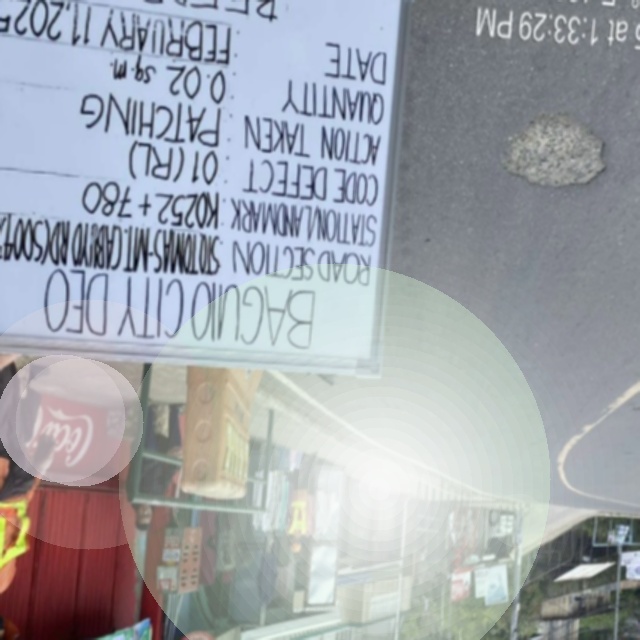 BAGUIO CITY DEO
ROAD SECTION :
STATION/LANDMARK : K0252+780
CODE DEFECT : 01 (RL)
ACTION TAKEN : PATCHING
QUANTITY : 0.02 sq.m
DATE : FEBRUARY 11,202
at 1:33:29 PM